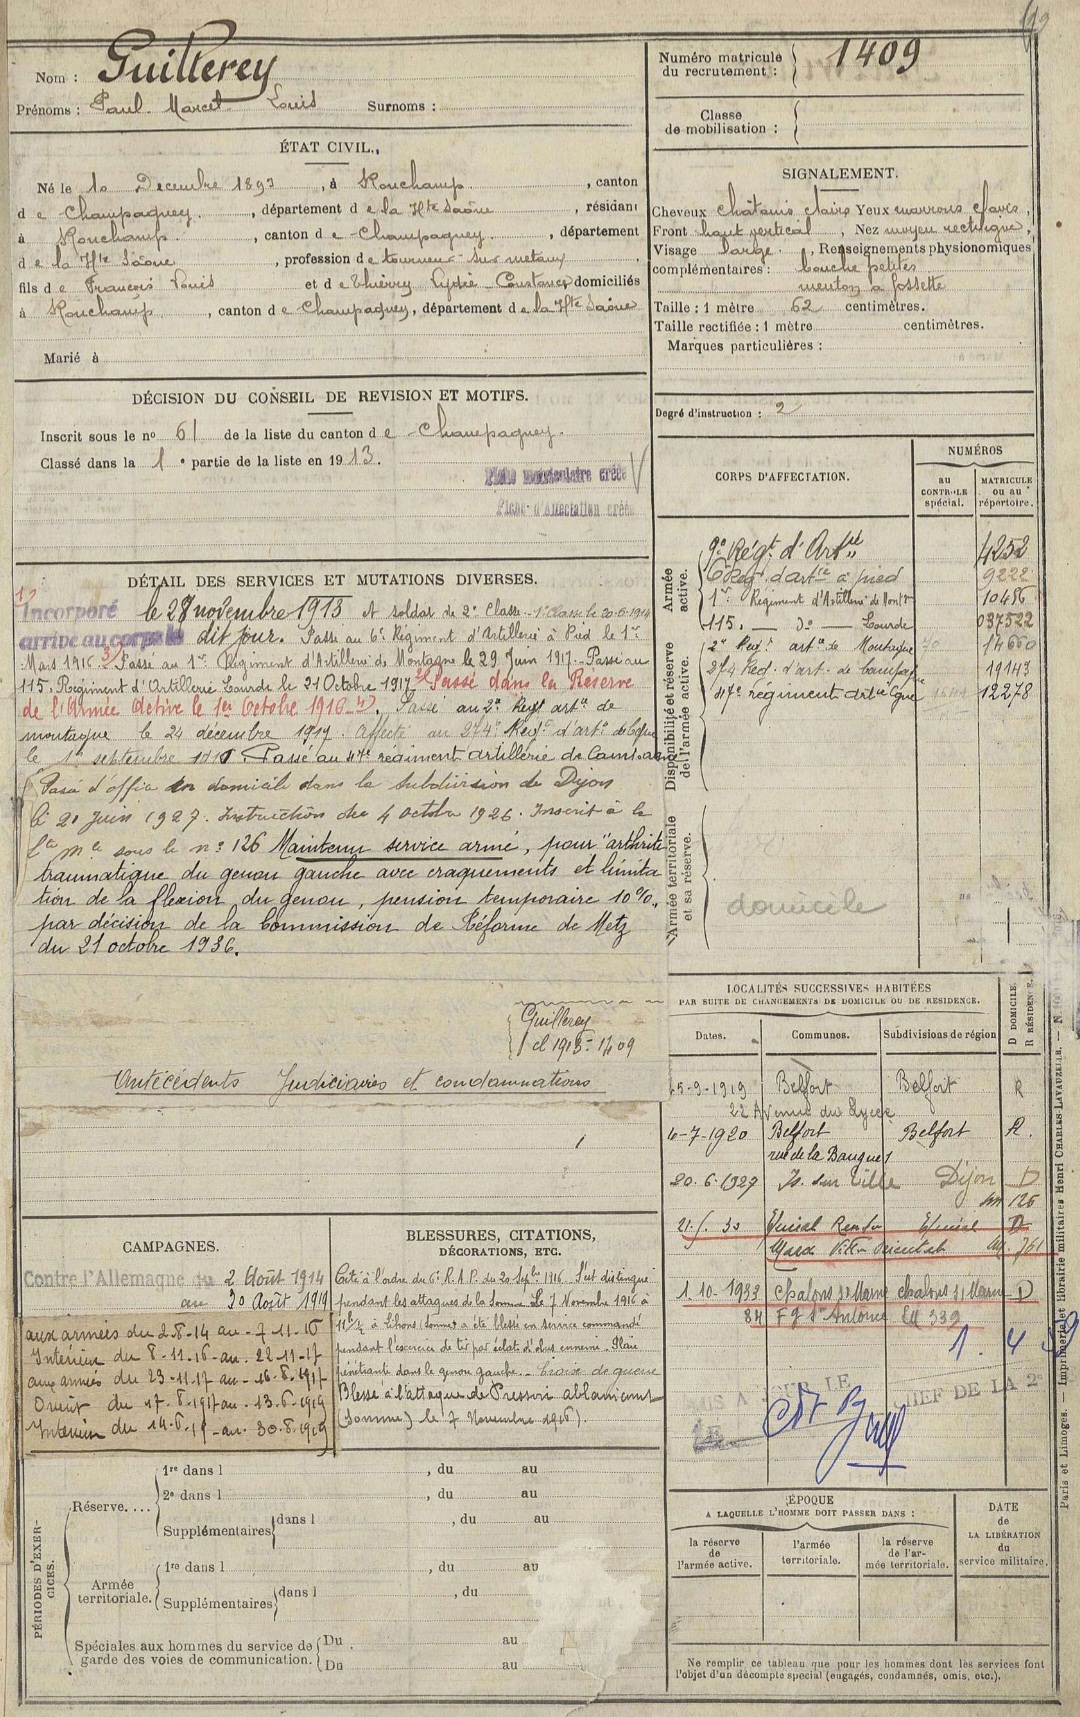 Nom : Guillerey
Prénoms : Paul Marcel Louis Surnoms :
Numéro matricule du recrutement : 1409
Classe de mobilisation :
ÉTAT CIVIL.
Né le 10 Decembre 1893, à Ronchamp, canton
de Champagney, département de la Hte Saône, résidant
à Ronchamp, canton de Champagney, département
de la Hte Saône, profession de tourneur sur metaux
fils de François Louis et de Thièrry Lydie Constance domiciliés
à Ronchamp, canton de Champagney, département de la Hte Saône
Marié à
SIGNALEMENT.
Cheveux châtains clairs Yeux marrons clairs,
Front haut vertical, Nez moyen rectiligne,
Visage large, Renseignements physionomiques
complémentaires : bouche petites
menton à fossette
Taille : 1 mètre 62 centimètres.
Taille rectifiée : 1 mètre centimètres.
Marques particulières :
Degré d'instruction : 2
DÉCISION DU CONSEIL DE REVISION ET MOTIFS.
Inscrit sous le no 61 de la liste du canton de Champagney.
Classé dans la 1e partie de la liste en 1913.
Fiche matriculaire créée
Fiche d'Affectation créée
DÉTAIL DES SERVICES ET MUTATIONS DIVERSES.
Incorporé le 28 novembre 1913 et soldat de 2e Classe. 1e Classe le 20-6-1914
arrivé au corps le dit jour. Passé au 6e Régiment d'Artillerie à Pied le 1er
Mars 1916. Passé au 1er Régiment d'Artillerie de Montagne le 29 Juin 1917. Passé au
115e Régiment d'Artillerie Lourde le 21 Octobre 1917 Passé dans la Réserve
de l'Armée Active le 1er Octobre 1916. Passé au 2e Regt arte de
montagne le 24 décembre 1917. Affecté au 274e Regt d'arte de Cgne
le 1er septembre Passé au 47e régiment artillerie de Campagne
Passé d'office en domicile dans la subdivision de Dijon
le 20 Juin 1927. Instruction du 4 octobre 1926. Inscrit à la
sous le no 126 Maintenu service armé, pour "arthrite
traumatique du genou gauche avec craquements et limita
tion de la flexion du genou, pension temporaire 10%,
par décision de la Commission de Réforme de Metz
du 21 octobre 1936.
Guillerey
cl 1913 - 1409
Antécédents Judiciaires et condamnations
CORPS D'AFFECTATION.
NUMÉROS
au CONTROLE spécial.
MATRICULE ou au répertoire.
Armée active.
9e Régt d'Artie 4252
6e Regt d'artie à pied 9222
1er Régiment d'Artillerie de Montne 10486
115e — do — Lourde 037522
Disponibilité et réserve de l'armée active.
2e Regt arte de Montagne 14660
274 Reg d'art. de Campagne 19143
47e régiment artie Cgne 12278
Armée territoriale et sa réserve.
domicile
LOCALITÉS SUCCESSIVES HABITÉES
PAR SUITE DE CHANGEMENTS DE DOMICILE OU DE RESIDENCE.
Dates. Communes. Subdivisions de région
D DOMICILE.
R RÉSIDENCE.
15-9-1919 Belfort Belfort R
22 Avenue du Lycée
6-7-1920 Belfort Belfort R.
rue de la Banque 1
20.6.1927 Is sur Tille Dijon D
126
Epinal Epinal D
761
1.10-1933 Chalons s/ Marne Chalons s/ Marne D
84 Fg St Antoine 339
CAMPAGNES.
Contre l'Allemagne du 2 Août 1914
au 30 Août 1919
aux armées du 2-8-14 au 7-11-16
Intérieur du 8-11-16 au 22-11-17
aux armées du 23-11-17 au 16-8-1917
Orient du 17-8-1917 au 13-6-1919
Intérieur du 14-6-19 au 30-8-1919
BLESSURES, CITATIONS,
DÉCORATIONS, ETC.
Cité à l'ordre du 6e R.A.P. du 20 Septbre 1916. S'est distingué
pendant les attaques de la Somme. Le 7 Novembre 1916 à
à Lihons (Somme) a été blessé en service commandé
pendant l'exercice de tir par éclats d'obus ennemis. Plaie
pénétrante dans le genou gauche. Croix de guerre
Blessé à l'attaque de Pressoir Ablaincourt
(Somme) le 7 Novembre 1916).
MIS A JOUR LE
CHEF DE LA 2e
PÉRIODES D'EXERCICES.
Réserve....
1re dans l , du au
2e dans l , du au
Supplémentaires dans l , du au
Armée territoriale.
1re dans l , du au
Supplémentaires dans l , du
Spéciales aux hommes du service de garde des voies de communication.
Du au
Du au
ÉPOQUE
A LAQUELLE L'HOMME DOIT PASSER DANS :
la réserve de l'armée active.
l'armée territoriale.
la réserve de l'armée territoriale.
DATE de LA LIBÉRATION du service militaire.
Ne remplir ce tableau que pour les hommes dont les services font
l'objet d'un décompte spécial (engagés, condamnés, omis, etc.).
Paris et Limoges. — Imprimerie et librairie militaires Henri CHARLES-LAVAUZELLE.